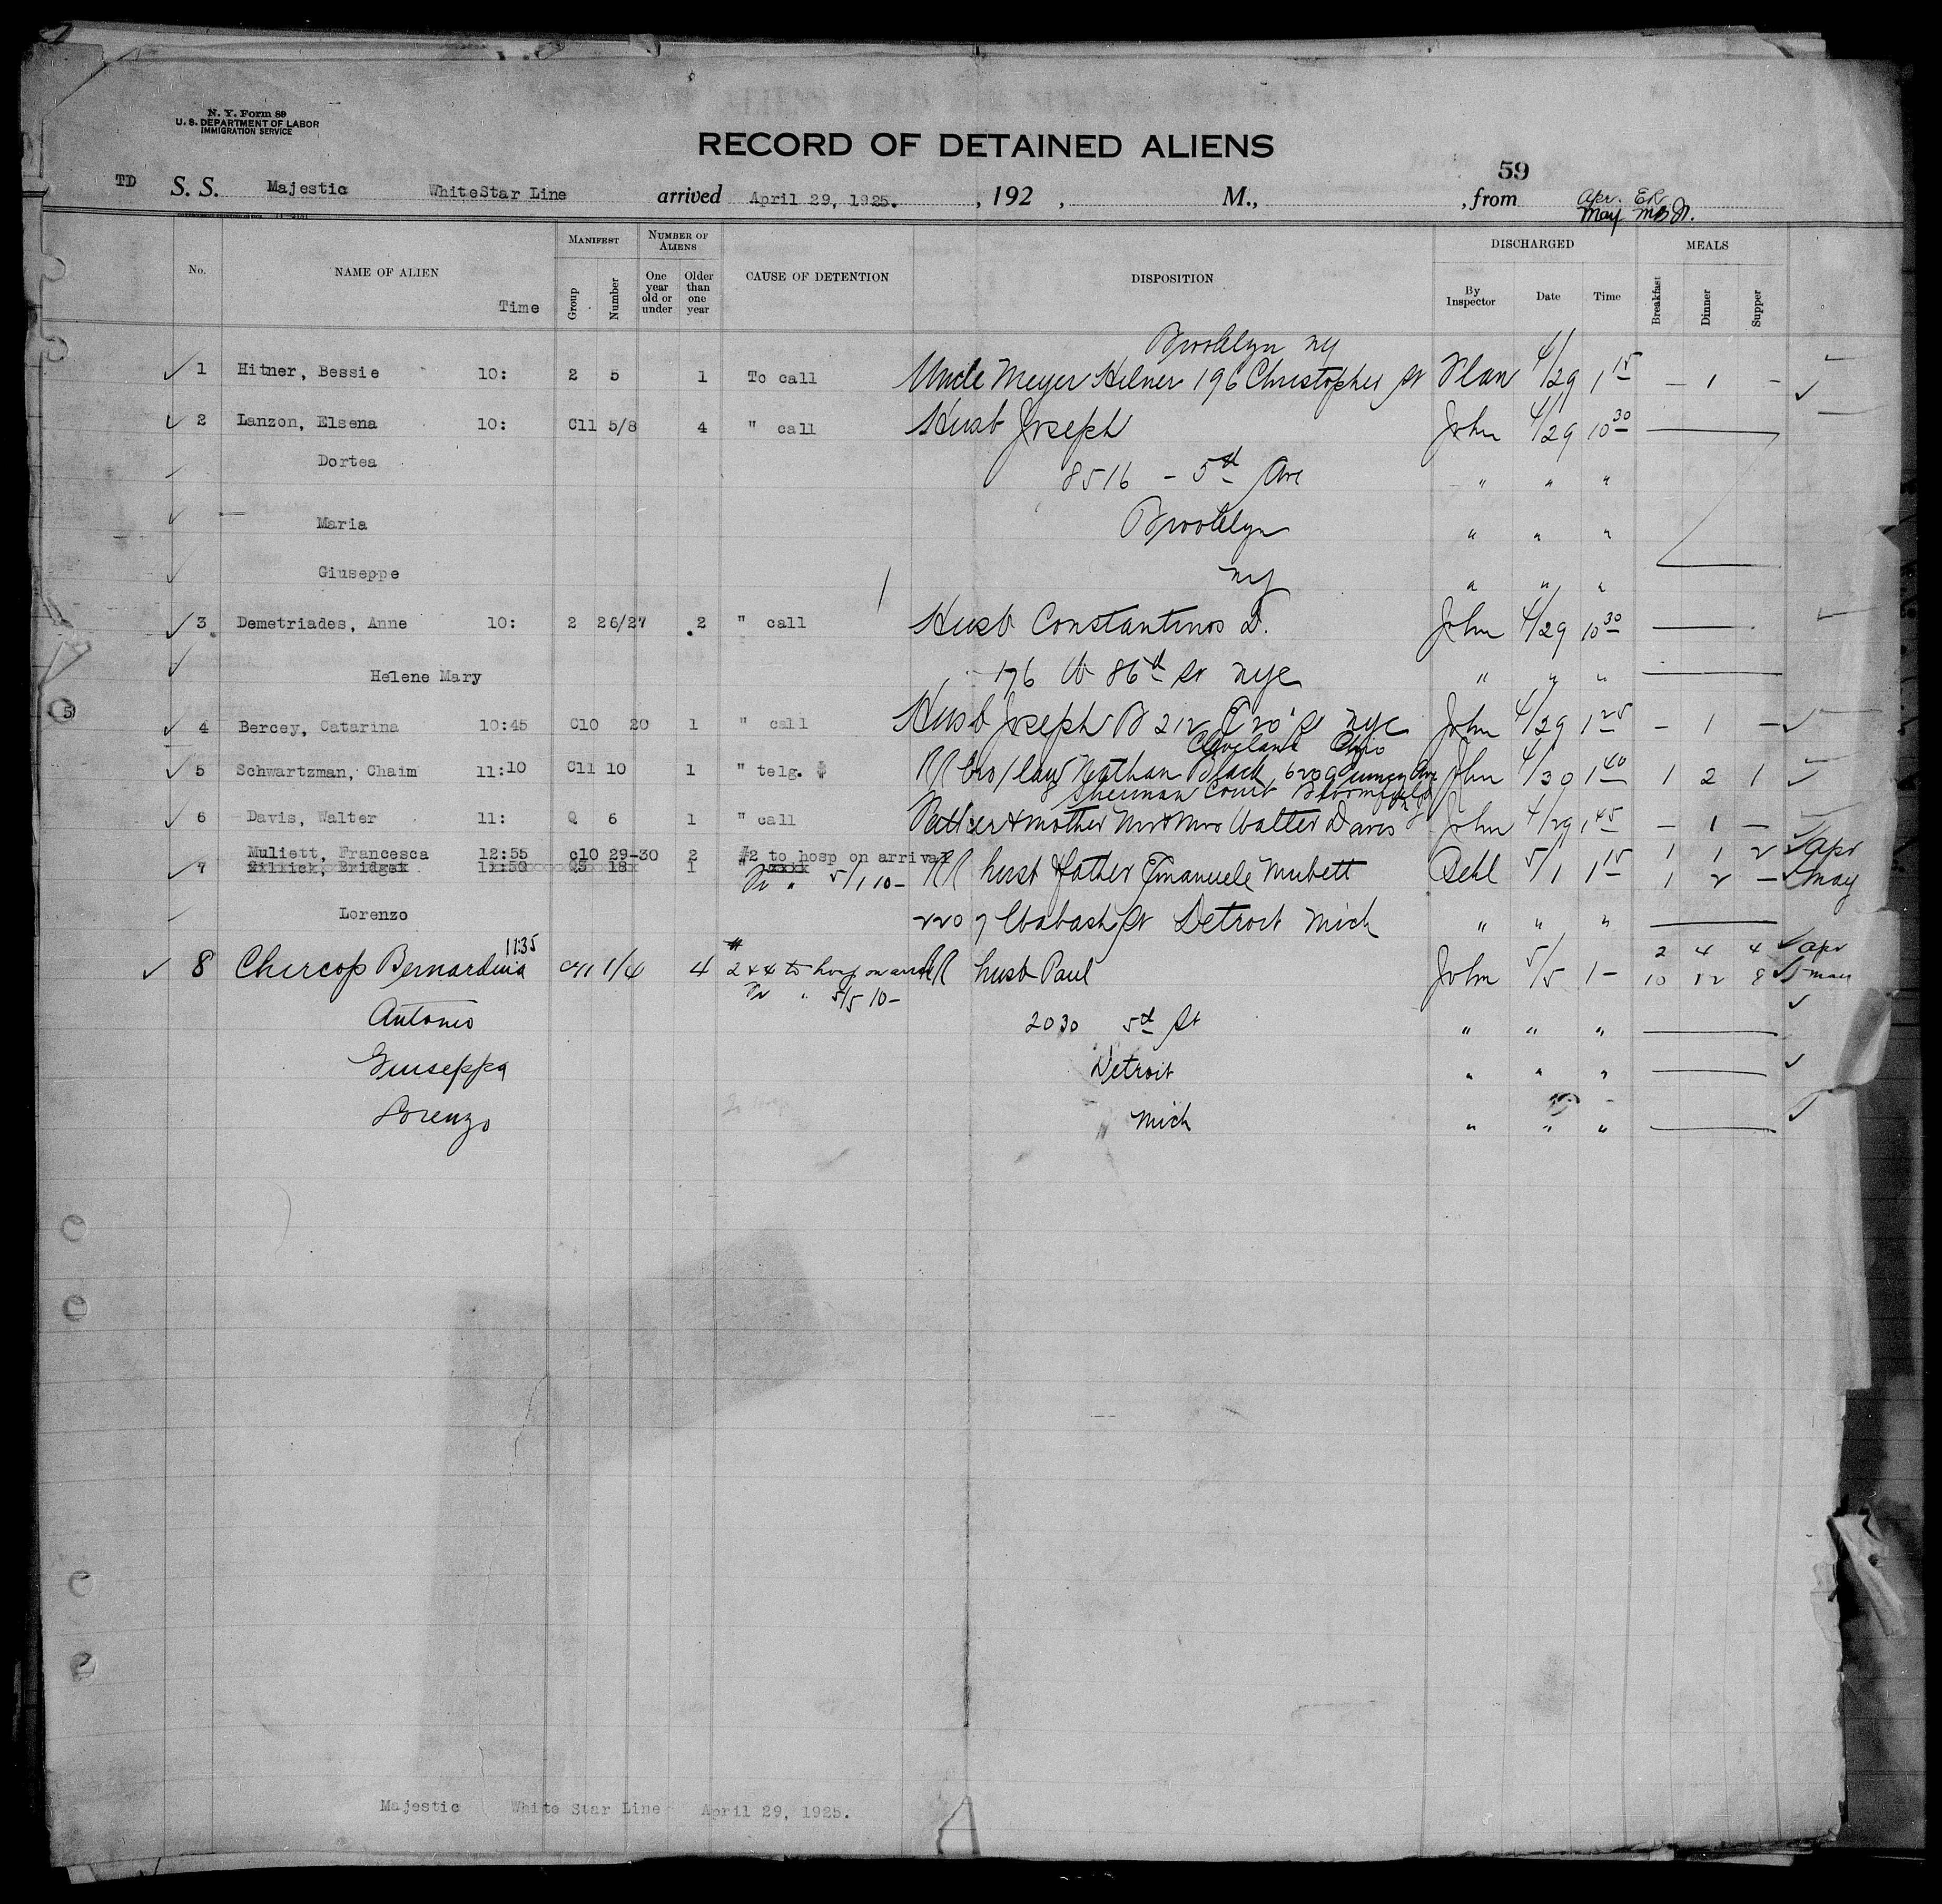 N. Y. Form 89
U. S. DEPARTMENT OF LABOR
IMMIGRATION SERVICE
RECORD OF DETAINED ALIENS
59
TD S. S. Majestic WhiteStar Line arrived April 29, 1925. , 192 , M., , from Apr. ER
May
No. NAME OF ALIEN Time MANIFEST Group Number NUMBER OF ALIENS One year old or under Older than one year CAUSE OF DETENTION DISPOSITION DISCHARGED By Inspector Date Time MEALS Breakfast Dinner Supper
Brooklyn NY
1 Hitner, Bessie 10: 2 5 1 To call Uncle Meyer Hilner 196 Christopher St 4/29 1 15 — 1 —
2 Lanzon, Elsena 10: C11 5/8 4 " call Husb Joseph John 4/29 10 30
Dortea 8516 - 5th Ave " " "
Maria Brooklyn " " "
Giuseppe NY " " "
3 Demetriades, Anne 10: 2 26/27 2 " call Husb Constantinos D. John 4/29 10 30
Helene Mary 176 W 86th St NYC " " "
4 Bercey, Catarina 10:45 C10 20 1 " call Husb Joseph B 212 E 20 St NYC John 4/29 1 25 — 1 —
Cleveland Ohio
5 Schwartzman, Chaim 11:10 C11 10 1 " telg. $ RR bro/law Nathan Black, 6209 Ave John 4/30 1 40 1 2 1
Sherman Court Bloomfield
6 Davis, Walter 11: Q 6 1 " call Father & mother Mr & Mrs Walter Davis John 4/29 1 45 — 1 —
Muliett, Francesca 12:55 c10 29-30 2 #2 to hosp on arrival 1 1 2 apr
7 Gillick, Bridget 11:50 Q5 18 1 " xxxx RR husb & father Emanuele Mubett 5/1 1 15 1 2 — may
" 5/1 10-
Lorenzo 2207 Wabash St Detroit Mich " " "
11:35 # 2 4 4 apr
8 Chircop Bernardina C11 1/4 4 2 & 4 to hosp on arriv RR husb Paul John 5/5 1- 10 12 8 may
" 5/5 10-
Antonio 2030 5th St " " "
Giuseppa Detroit " " "
Lorenzo Mich " " "
Majestic White Star Line April 29, 1925.